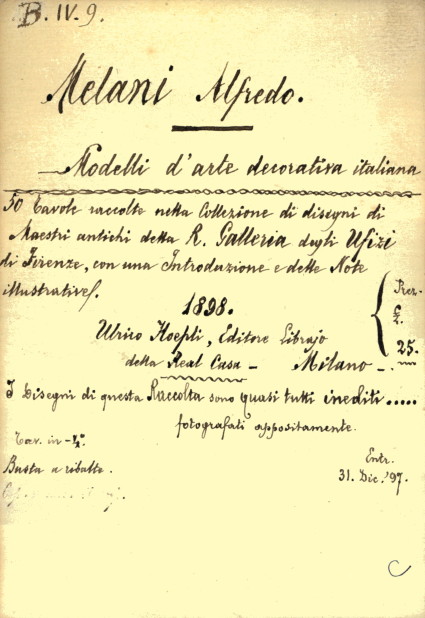 B. IV. 9.
Melani Alfredo.
Modelli d'arte decorativa italiana
50 Tavole raccolte nella Collezione di disegni di
Maestri antichi della R. Galleria degli Ufizi
di Firenze, con una Introduzione e delle Note
illustrative.
1898.
Ulrico Hoepli, Editore Librajo
della Real Casa - Milano -
Prez.
£
25.
I Disegni di questa Raccolta sono quasi tutti inediti.....
fotografati appositamente.
Tav. in - 4°
Busta a ribalte.
Entr.
31. Dic. '97.
C